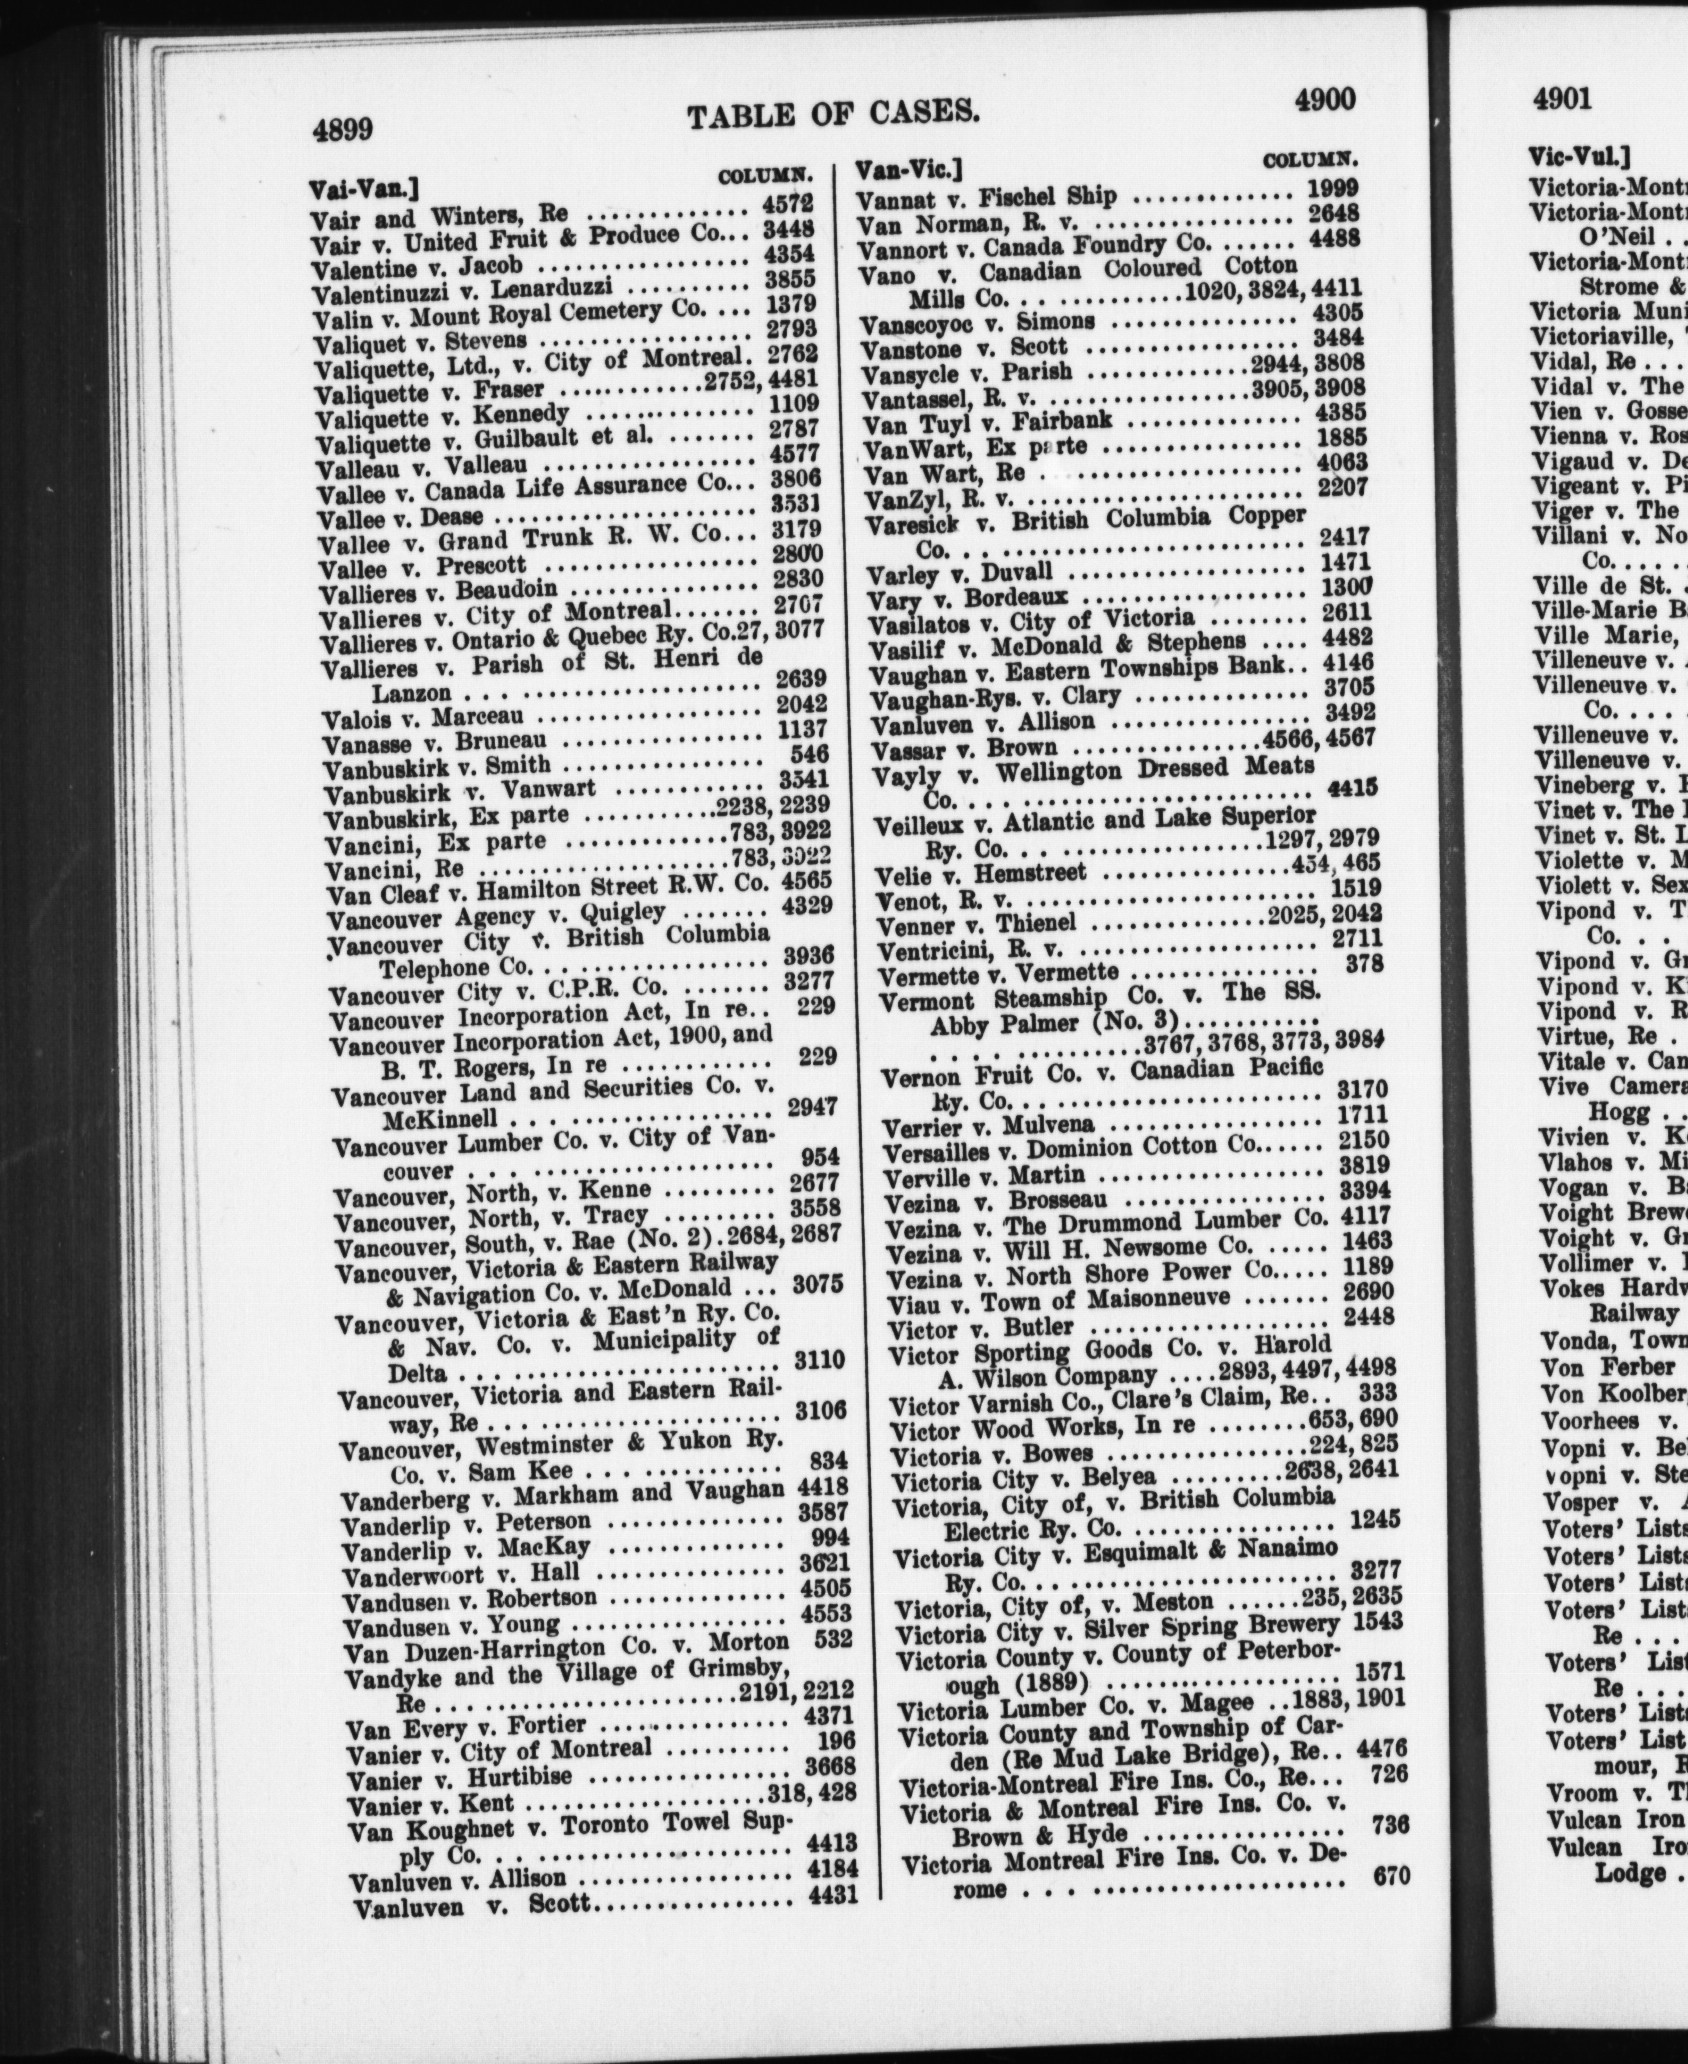 4899
TABLE OF CASES.
4900
Vai-Van.]
COLUMN.
Vair and Winters, Re ............. 4572
Vair v. United Fruit & Produce Co... 3448
Valentine v. Jacob ................. 4354
Valentinuzzi v. Lenarduzzi .......... 3855
Valin v. Mount Royal Cemetery Co. ... 1379
Valiquet v. Stevens ................. 2793
Valiquette, Ltd., v. City of Montreal. 2762
Valiquette v. Fraser ............2752, 4481
Valiquette v. Kennedy .............. 1109
Valiquette v. Guilbault et al. ....... 2787
Valleau v. Valleau ................. 4577
Vallee v. Canada Life Assurance Co... 3806
Vallee v. Dease ..................... 3531
Vallee v. Grand Trunk R. W. Co... 3179
Vallee v. Prescott ................. 2800
Vallieres v. Beaudoin ............... 2830
Vallieres v. City of Montreal....... 2707
Vallieres v. Ontario & Quebec Ry. Co.27, 3077
Vallieres v. Parish of St. Henri de
Lanzon ..................... 2639
Valois v. Marceau ................. 2042
Vanasse v. Bruneau ................ 1137
Vanbuskirk v. Smith ................ 546
Vanbuskirk v. Vanwart ............ 3541
Vanbuskirk, Ex parte ...........2238, 2239
Vancini, Ex parte .............783, 3922
Vancini, Re ....................783, 3922
Van Cleaf v. Hamilton Street R.W. Co. 4565
Vancouver Agency v. Quigley ....... 4329
Vancouver City v. British Columbia
Telephone Co. ................. 3936
Vancouver City v. C.P.R. Co. ....... 3277
Vancouver Incorporation Act, In re.. 229
Vancouver Incorporation Act, 1900, and
B. T. Rogers, In re ............ 229
Vancouver Land and Securities Co. v.
McKinnell .................... 2947
Vancouver Lumber Co. v. City of Van-
couver ...................... 954
Vancouver, North, v. Kenne ......... 2677
Vancouver, North, v. Tracy ......... 3558
Vancouver, South, v. Rae (No. 2).2684, 2687
Vancouver, Victoria & Eastern Railway
& Navigation Co. v. McDonald ... 3075
Vancouver, Victoria & East'n Ry. Co.
& Nav. Co. v. Municipality of
Delta ........................ 3110
Vancouver, Victoria and Eastern Rail-
way, Re ...................... 3106
Vancouver, Westminster & Yukon Ry.
Co. v. Sam Kee .............. 834
Vanderberg v. Markham and Vaughan 4418
Vanderlip v. Peterson .............. 3587
Vanderlip v. MacKay .............. 994
Vanderwoort v. Hall ............... 3621
Vandusen v. Robertson .............. 4505
Vandusen v. Young ................. 4553
Van Duzen-Harrington Co. v. Morton 532
Vandyke and the Village of Grimsby,
Re .........................2191, 2212
Van Every v. Fortier ............... 4371
Vanier v. City of Montreal .......... 196
Vanier v. Hurtibise ................ 3668
Vanier v. Kent ....................318, 428
Van Koughnet v. Toronto Towel Sup-
ply Co. ....................... 4413
Vanluven v. Allison ................. 4184
Vanluven v. Scott................ 4431
Van-Vic.]
COLUMN.
Vannat v. Fischel Ship ............. 1999
Van Norman, R. v. ................ 2648
Vannort v. Canada Foundry Co. ...... 4488
Vano v. Canadian Coloured Cotton
Mills Co. .............1020, 3824, 4411
Vanscoyoc v. Simons ............... 4305
Vanstone v. Scott ................. 3484
Vansycle v. Parish .............2944, 3808
Vantassel, R. v. .................3905, 3908
Van Tuyl v. Fairbank .............. 4385
VanWart, Ex parte ................ 1885
Van Wart, Re ..................... 4063
VanZyl, R. v. ....................... 2207
Varesick v. British Columbia Copper
Co. ........................... 2417
Varley v. Duvall ................... 1471
Vary v. Bordeaux .................. 1300
Vasilatos v. City of Victoria ........ 2611
Vasilif v. McDonald & Stephens .... 4482
Vaughan v. Eastern Townships Bank.. 4146
Vaughan-Rys. v. Clary .............. 3705
Vanluven v. Allison ................ 3492
Vassar v. Brown ................4566, 4567
Vayly v. Wellington Dressed Meats
Co. .......................... 4415
Veilleux v. Atlantic and Lake Superior
Ry. Co. ...................1297, 2979
Velie v. Hemstreet ...............454, 465
Venot, R. v. ........................ 1519
Venner v. Thienel ..............2025, 2042
Ventricini, R. v. .................... 2711
Vermette v. Vermette ................ 378
Vermont Steamship Co. v. The SS.
Abby Palmer (No. 3)...........
...............3767, 3768, 3773, 3984
Vernon Fruit Co. v. Canadian Pacific
Ry. Co. ....................... 3170
Verrier v. Mulvena ................. 1711
Versailles v. Dominion Cotton Co...... 2150
Verville v. Martin .................. 3819
Vezina v. Brosseau ................ 3394
Vezina v. The Drummond Lumber Co. 4117
Vezina v. Will H. Newsome Co. ..... 1463
Vezina v. North Shore Power Co..... 1189
Viau v. Town of Maisonneuve ....... 2690
Victor v. Butler ................... 2448
Victor Sporting Goods Co. v. Harold
A. Wilson Company ....2893, 4497, 4498
Victor Varnish Co., Clare's Claim, Re.. 333
Victor Wood Works, In re ........653, 690
Victoria v. Bowes ................224, 825
Victoria City v. Belyea .........2638, 2641
Victoria, City of, v. British Columbia
Electric Ry. Co. ................. 1245
Victoria City v. Esquimalt & Nanaimo
Ry. Co. ........................ 3277
Victoria, City of, v. Meston ......235, 2635
Victoria City v. Silver Spring Brewery 1543
Victoria County v. County of Peterbor-
ough (1889) ................... 1571
Victoria Lumber Co. v. Magee ..1883, 1901
Victoria County and Township of Car-
den (Re Mud Lake Bridge), Re.. 4476
Victoria-Montreal Fire Ins. Co., Re... 726
Victoria & Montreal Fire Ins. Co. v.
Brown & Hyde ................ 736
Victoria Montreal Fire Ins. Co. v. De-
rome ....................... 670
4901
Vic-Vul.]
Victoria-Mont
Victoria-Mont
O'Neil ..
Victoria-Mont
Strome &
Victoria Muni
Victoriaville,
Vidal, Re ...
Vidal v. The
Vien v. Gosse
Vienna v. Ros
Vigaud v. De
Vigeant v. Pi
Viger v. The
Villani v. No
Co. ....
Ville de St.
Ville-Marie B
Ville Marie,
Villeneuve v.
Villeneuve v.
Co. ...
Villeneuve v.
Villeneuve v.
Vineberg v.
Vinet v. The
Vinet v. St. L
Violette v. M
Violett v. Sex
Vipond v. T
Co. ..
Vipond v. Gr
Vipond v. K
Vipond v. R
Virtue, Re .
Vitale v. Can
Vive Camera
Hogg ..
Vivien v. K
Vlahos v. Mi
Vogan v. B
Voight Brew
Voight v. Gr
Vollimer v.
Vokes Hardw
Railway
Vonda, Town
Von Ferber
Von Koolber
Voorhees v.
Vopni v. Be
Vopni v. Ste
Vosper v.
Voters' Lists
Voters' Lists
Voters' Lists
Voters' List
Re ...
Voters' List
Re ...
Voters' Lists
Voters' List
mour, R
Vroom v. T
Vulcan Iron
Vulcan Iro
Lodge .